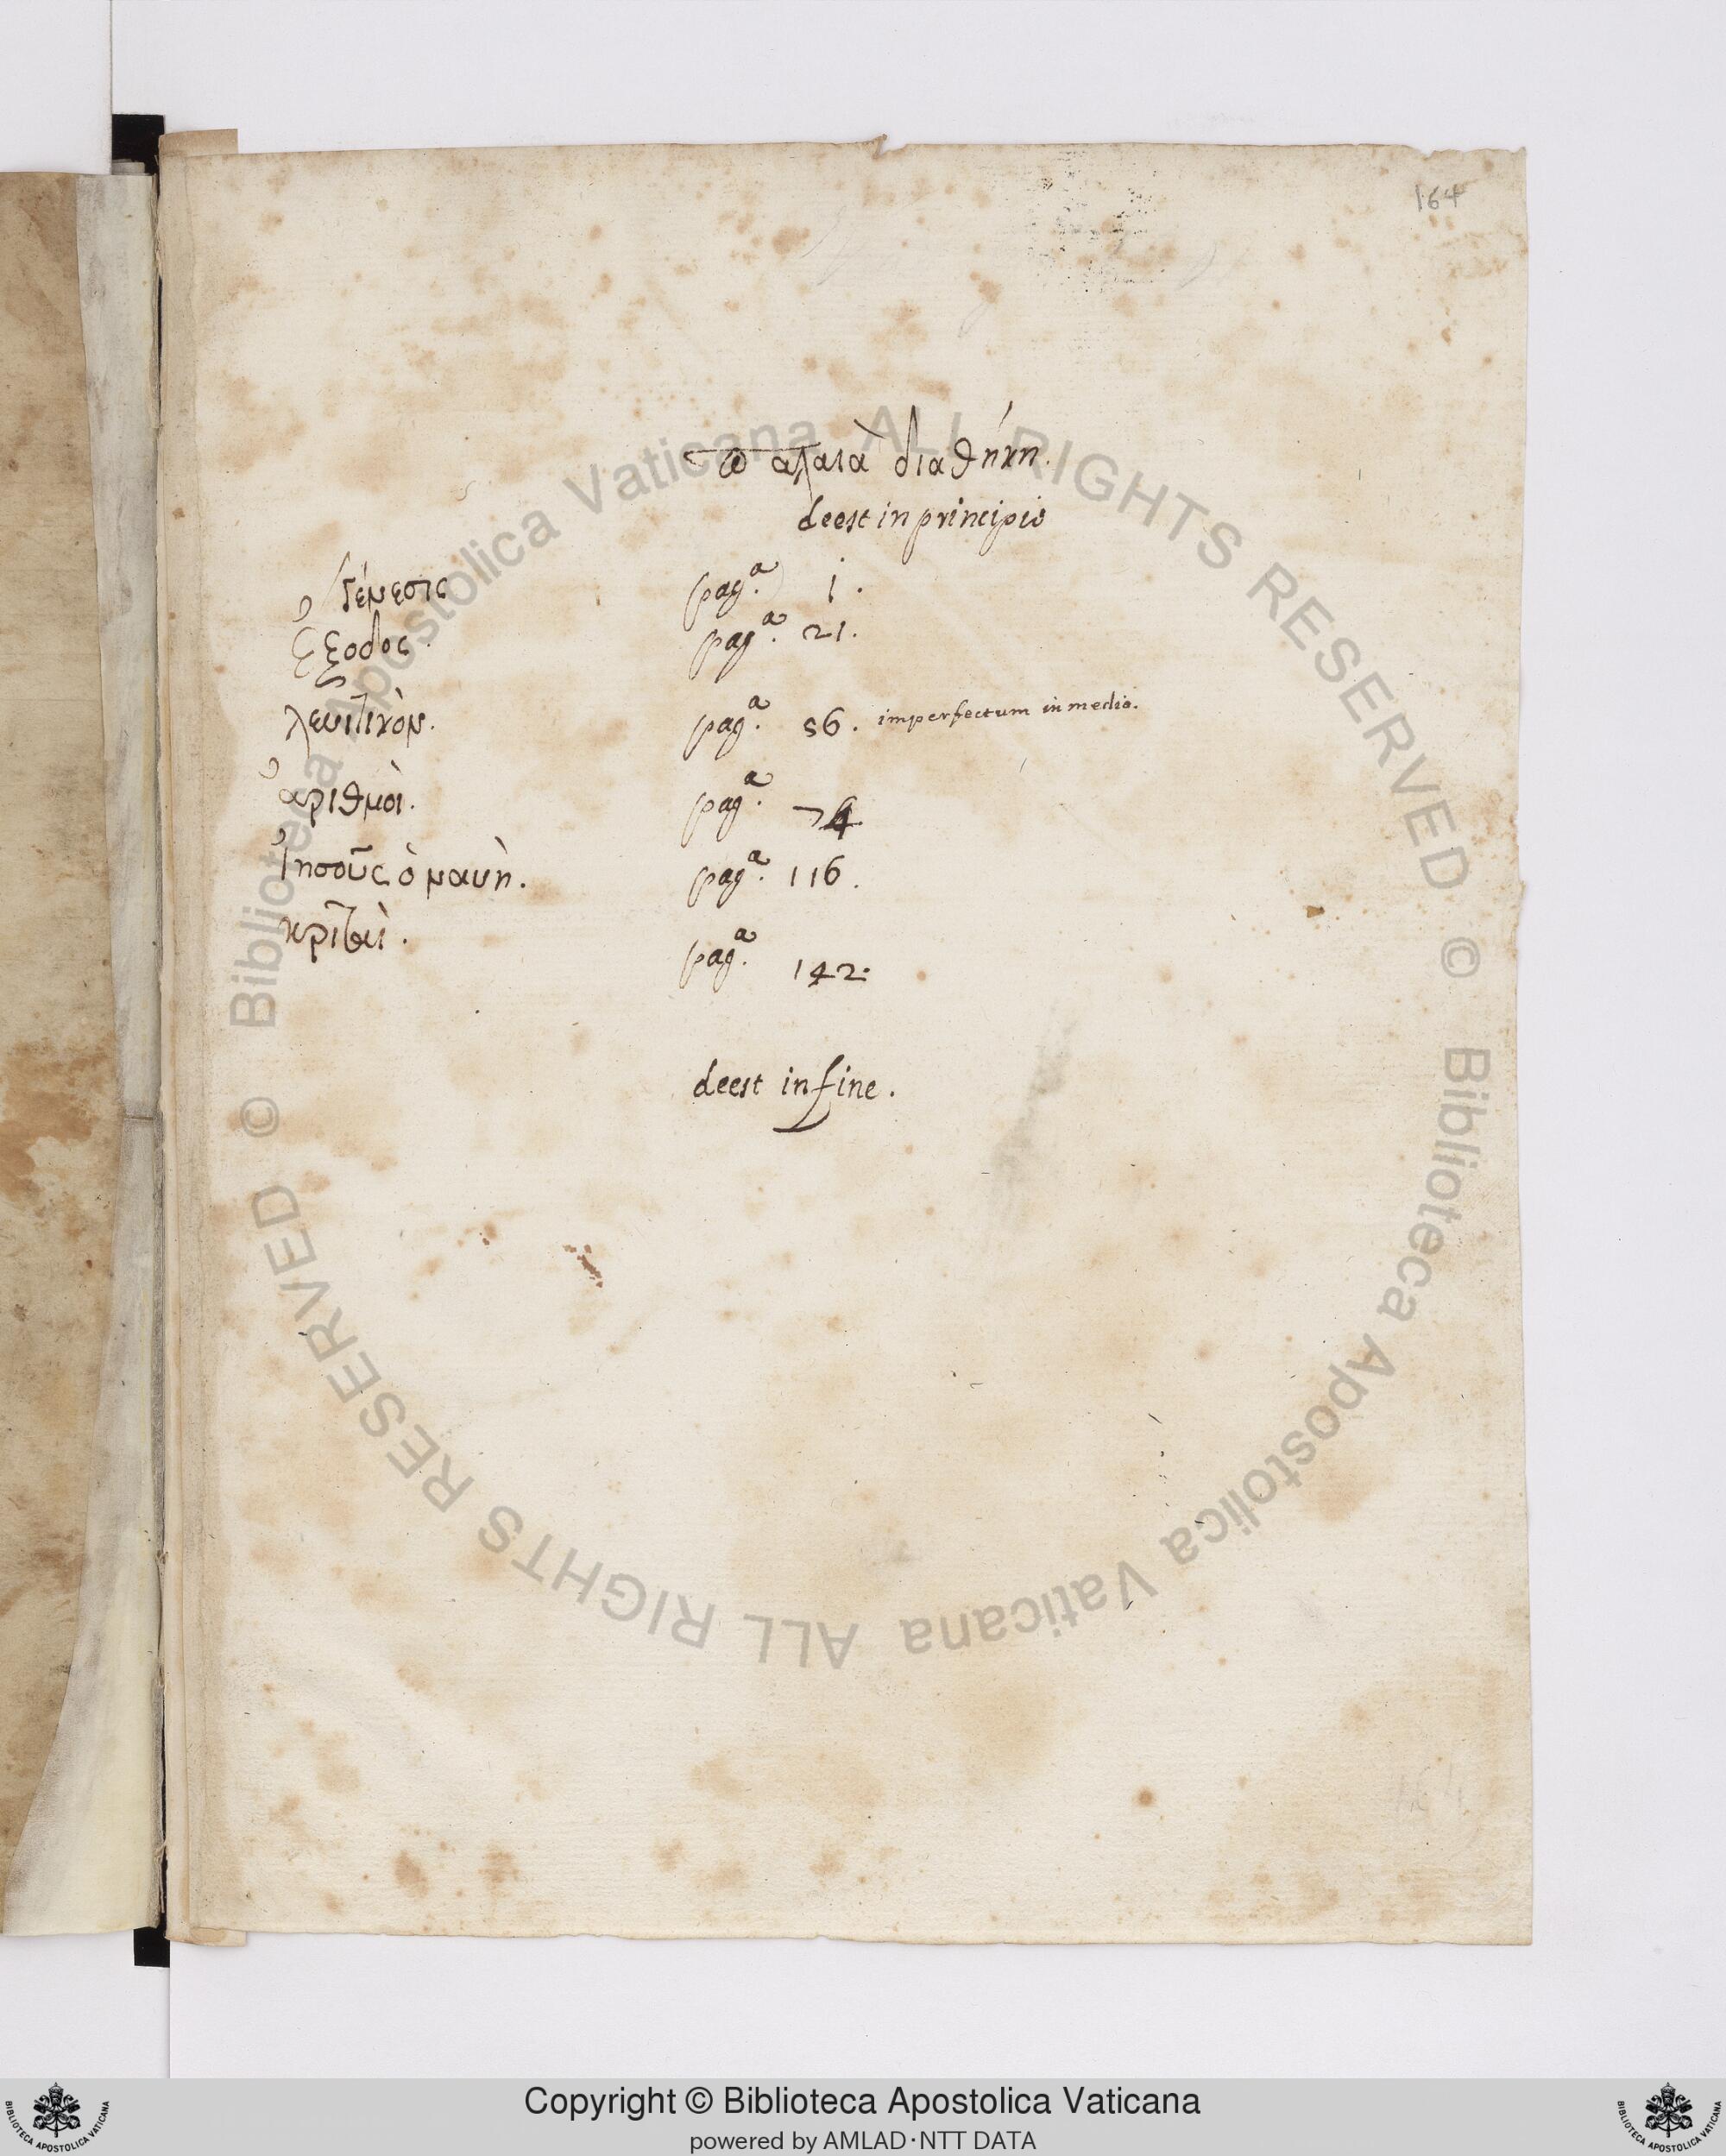 164
παλαιὰ διαθήκη.
deest in principio
Γένεσις pag.ª 1.
ἔξοδος. pag.ª 21.
λευιτικὸν. pag.ª 56. imperfectum in medio.
ἀριθμοὶ. pag.ª 74
Ἰησοῦς ὁ ναυὴ. pag.ª 116.
κριταὶ. pag.ª 142.
deest in fine.
© Biblioteca Apostolica Vaticana ALL RIGHTS RESERVED
© Biblioteca Apostolica Vaticana ALL RIGHTS RESERVED
Copyright © Biblioteca Apostolica Vaticana
powered by AMLAD·NTT DATA
BIBLIOTECA APOSTOLICA VATICANA
BIBLIOTECA APOSTOLICA VATICANA